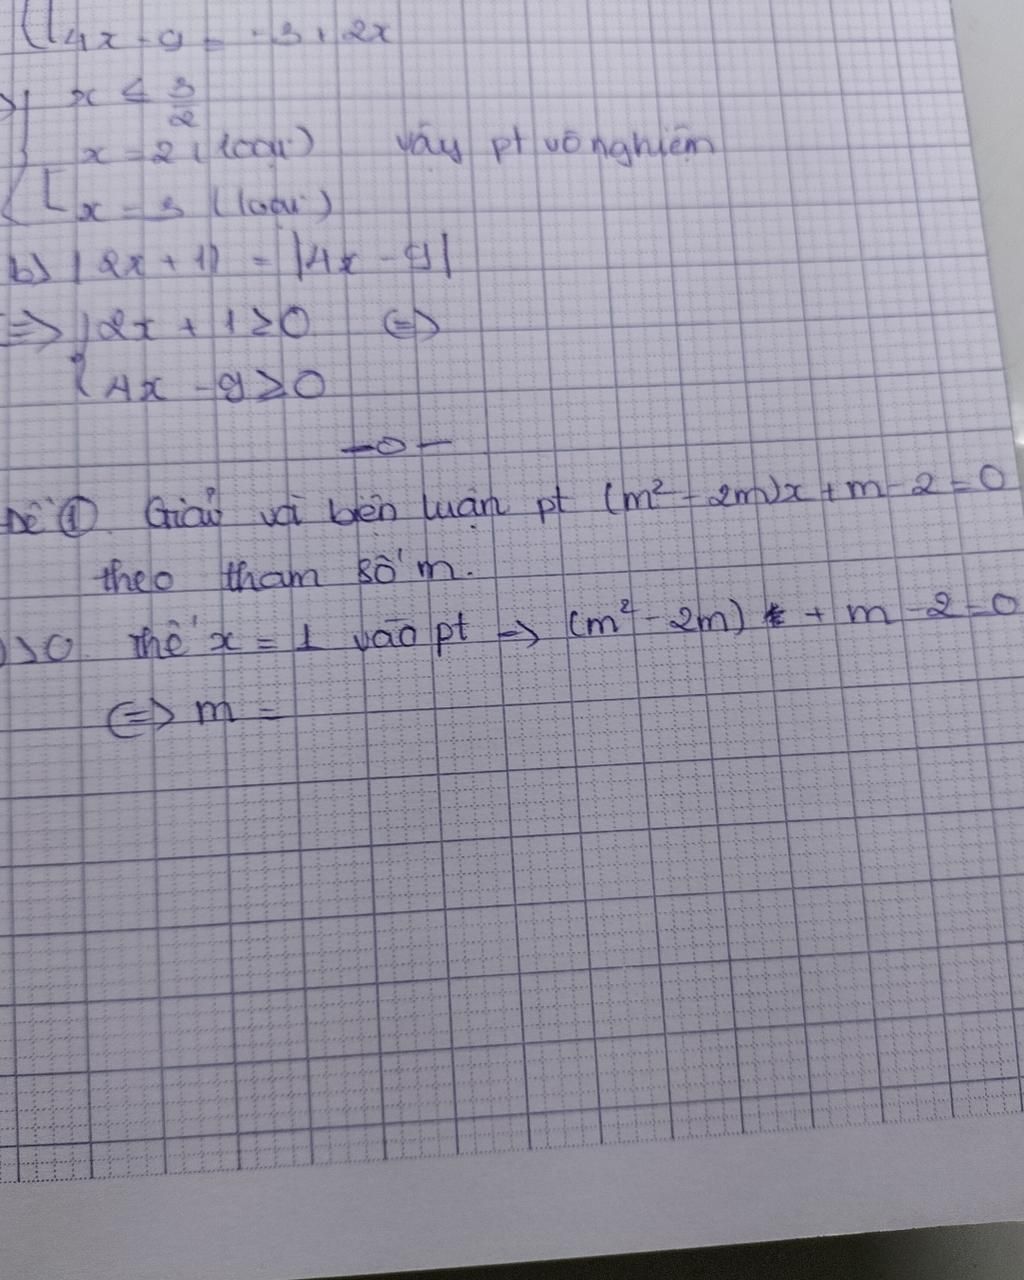 4x - 9 = -3 + 2x
x ≤ 3/2
x = 2 (loại) vậy pt vô nghiệm
x = 3 (loại)
b) |2x + 1| = |4x - 9|
=> 2x + 1 ≥ 0 <=>
4x - 9 ≥ 0
—o—
Đề ① Giải và biện luận pt (m² - 2m)x + m - 2 = 0
theo tham số m.
Thế x = 1 vào pt → (m² - 2m) + m - 2 = 0
<=> m =